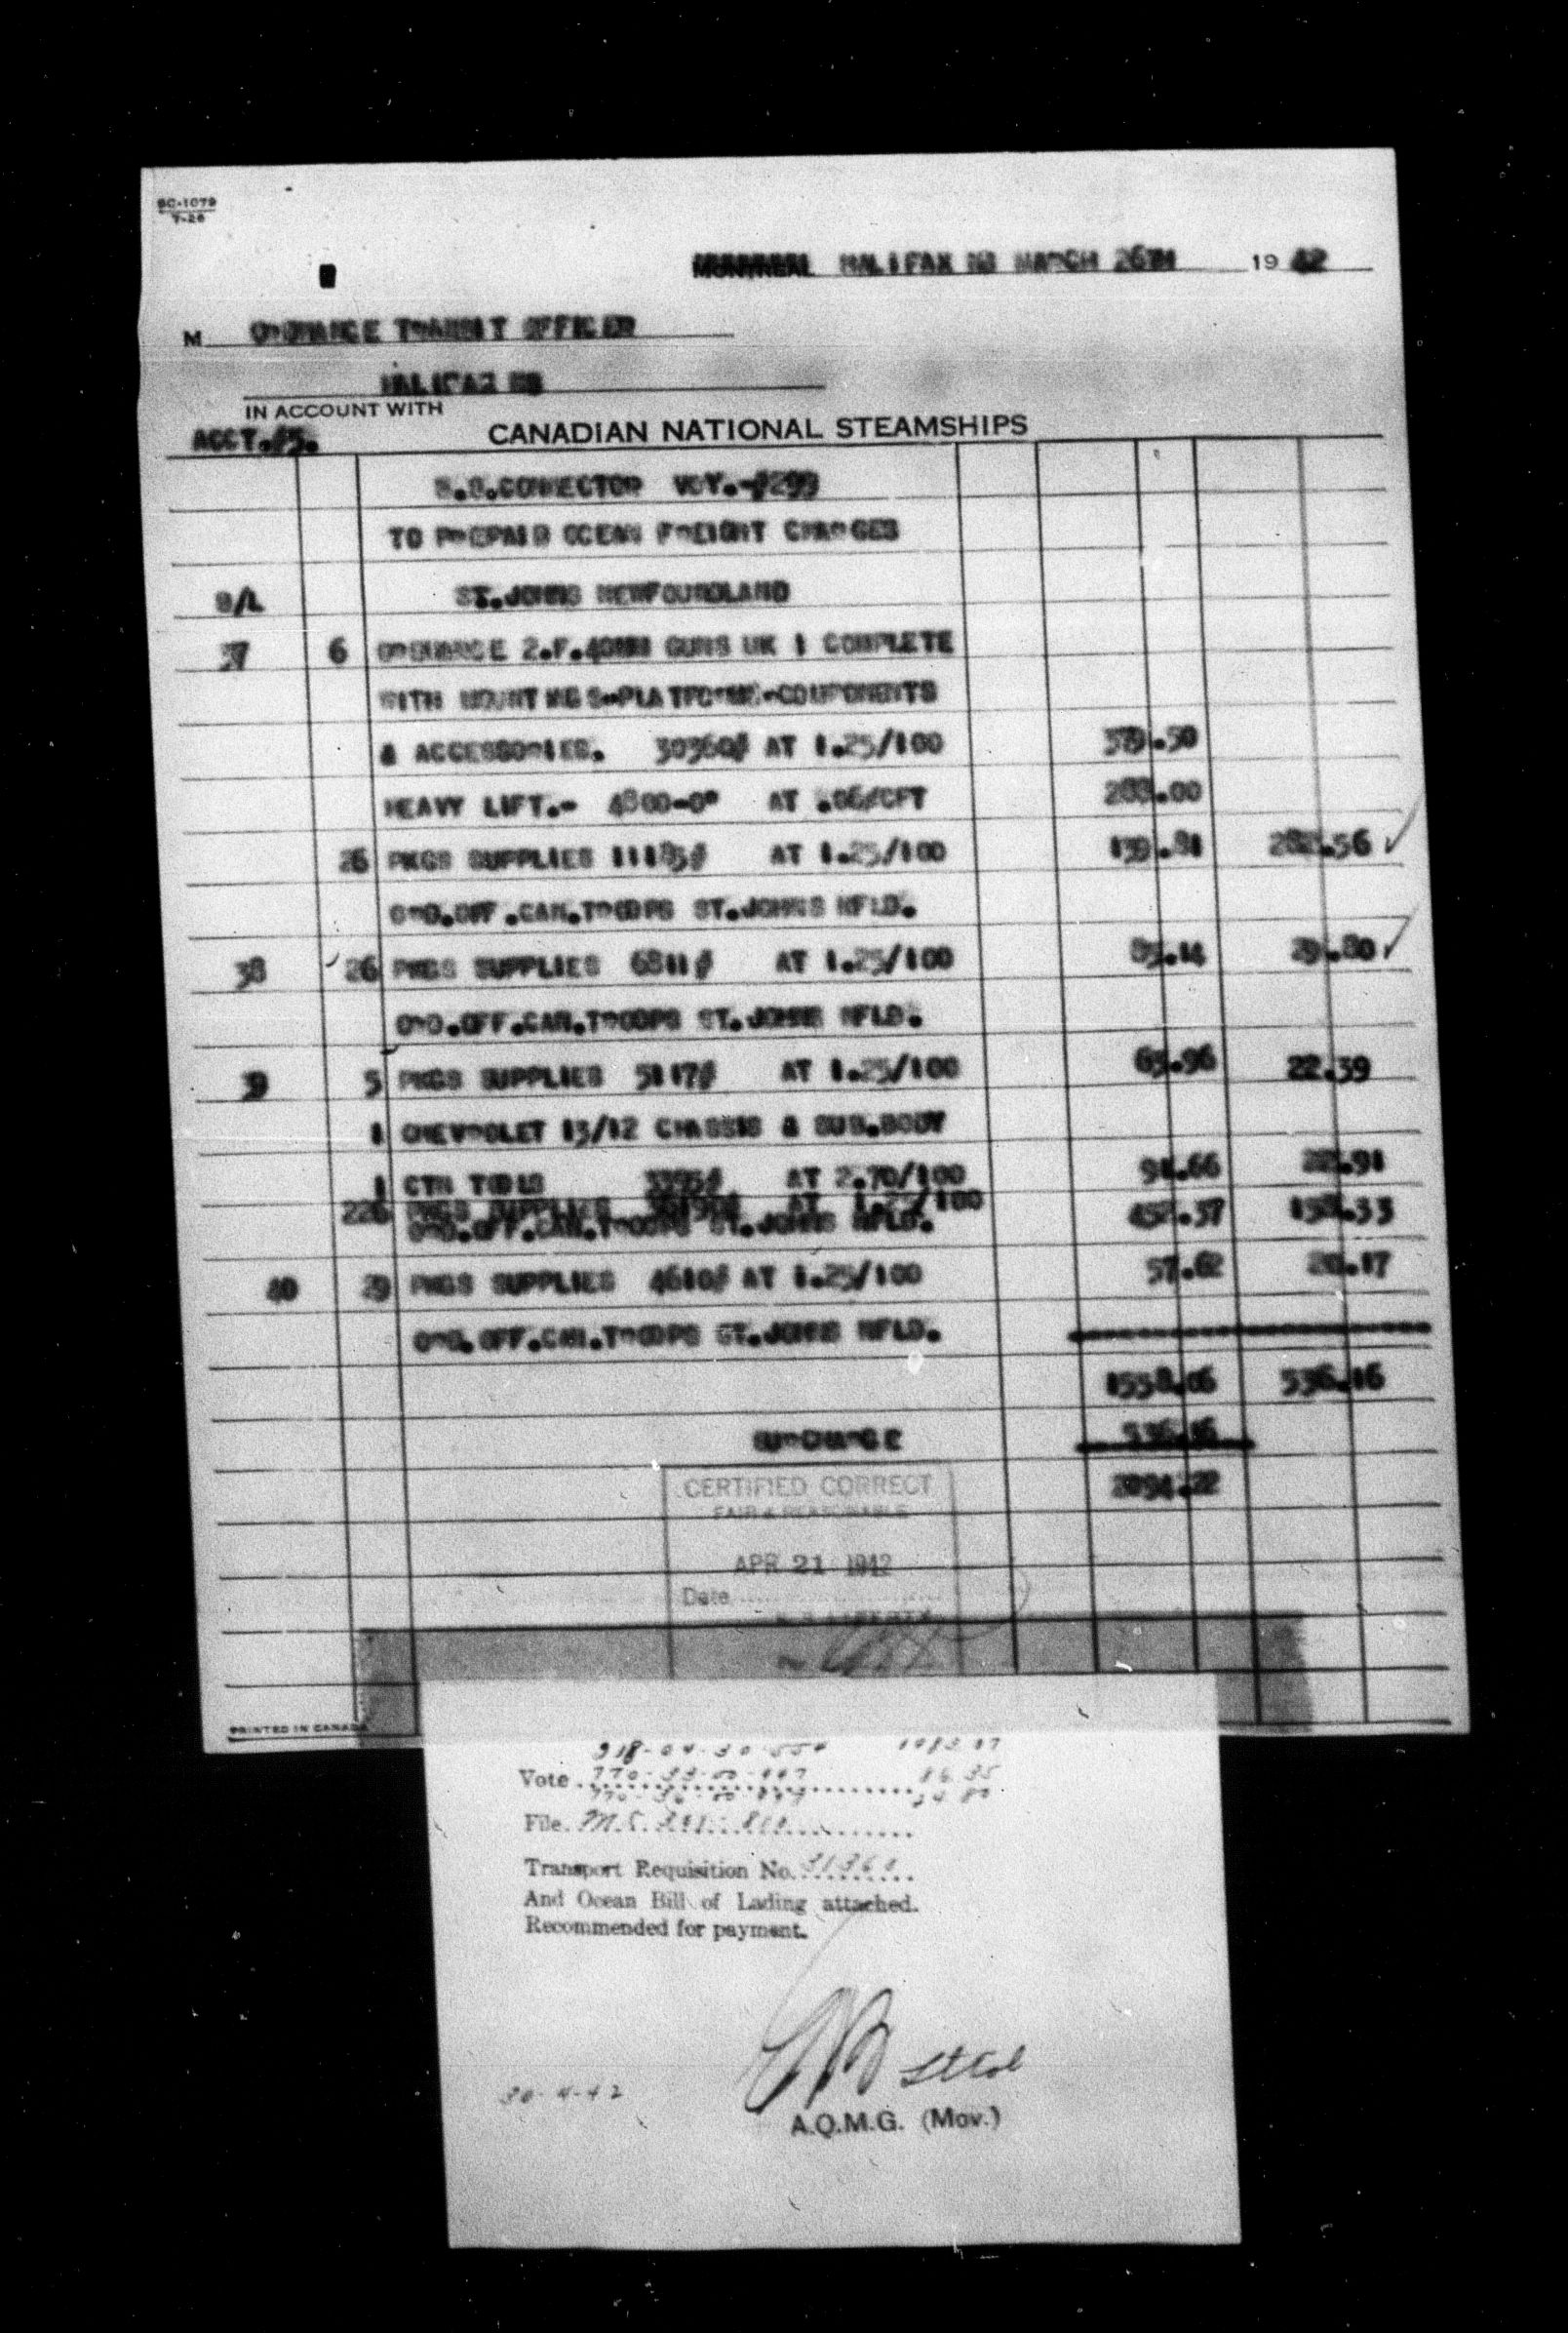 SC-1079
7-26
MONTREAL HALIFAX NS MARCH 26TH 19 42
M ORDNANCE TRANSIT OFFICER
HALIFAX NS
IN ACCOUNT WITH
ACCT.#5. CANADIAN NATIONAL STEAMSHIPS
S.S.CONNECTOR VOY.-#299
TO PREPAID OCEAN FREIGHT CHARGES
B/L ST.JOHNS NEWFOUNDLAND
37 6 ORDNANCE 2.F.40MM GUNS UK 1 COMPLETE
WITH MOUNTINGS-PLATFORMS-COMPONENTS
& ACCESSORIES. 30360# AT 1.25/100 379.50
HEAVY LIFT.- 4800-0" AT .06/CFT 288.00
26 PKGS SUPPLIES 11185# AT 1.25/100 139.81 282.56
ORD.OFF.CAN.TROOPS ST.JOHNS NFLD.
38 26 PKGS SUPPLIES 6811# AT 1.25/100 85.14 29.80
ORD.OFF.CAN.TROOPS ST.JOHNS NFLD.
39 5 PKGS SUPPLIES 5117# AT 1.25/100 63.96 22.39
1 CHEVROLET 13/12 CHASSIS & SUB.BODY
1 CTN TOOLS 3395# AT 2.70/100 91.66 22.91
226 PKGS SUPPLIES 36190# AT 1.25/100 452.37 158.33
ORD.OFF.CAN.TROOPS ST.JOHNS NFLD.
40 29 PKGS SUPPLIES 4610# AT 1.25/100 57.62 20.17
ORD.OFF.CAN.TROOPS ST.JOHNS NFLD.
1558.06 536.16
SURCHARGE 536.16
2094.22
CERTIFIED CORRECT
FAIR & REASONABLE
APR 21 1942
Date
PRINTED IN CANADA
Vote
File
Transport Requisition No.
And Ocean Bill of Lading attached.
Recommended for payment.
Lt Col
30-4-42
A.Q.M.G. (Mov.)